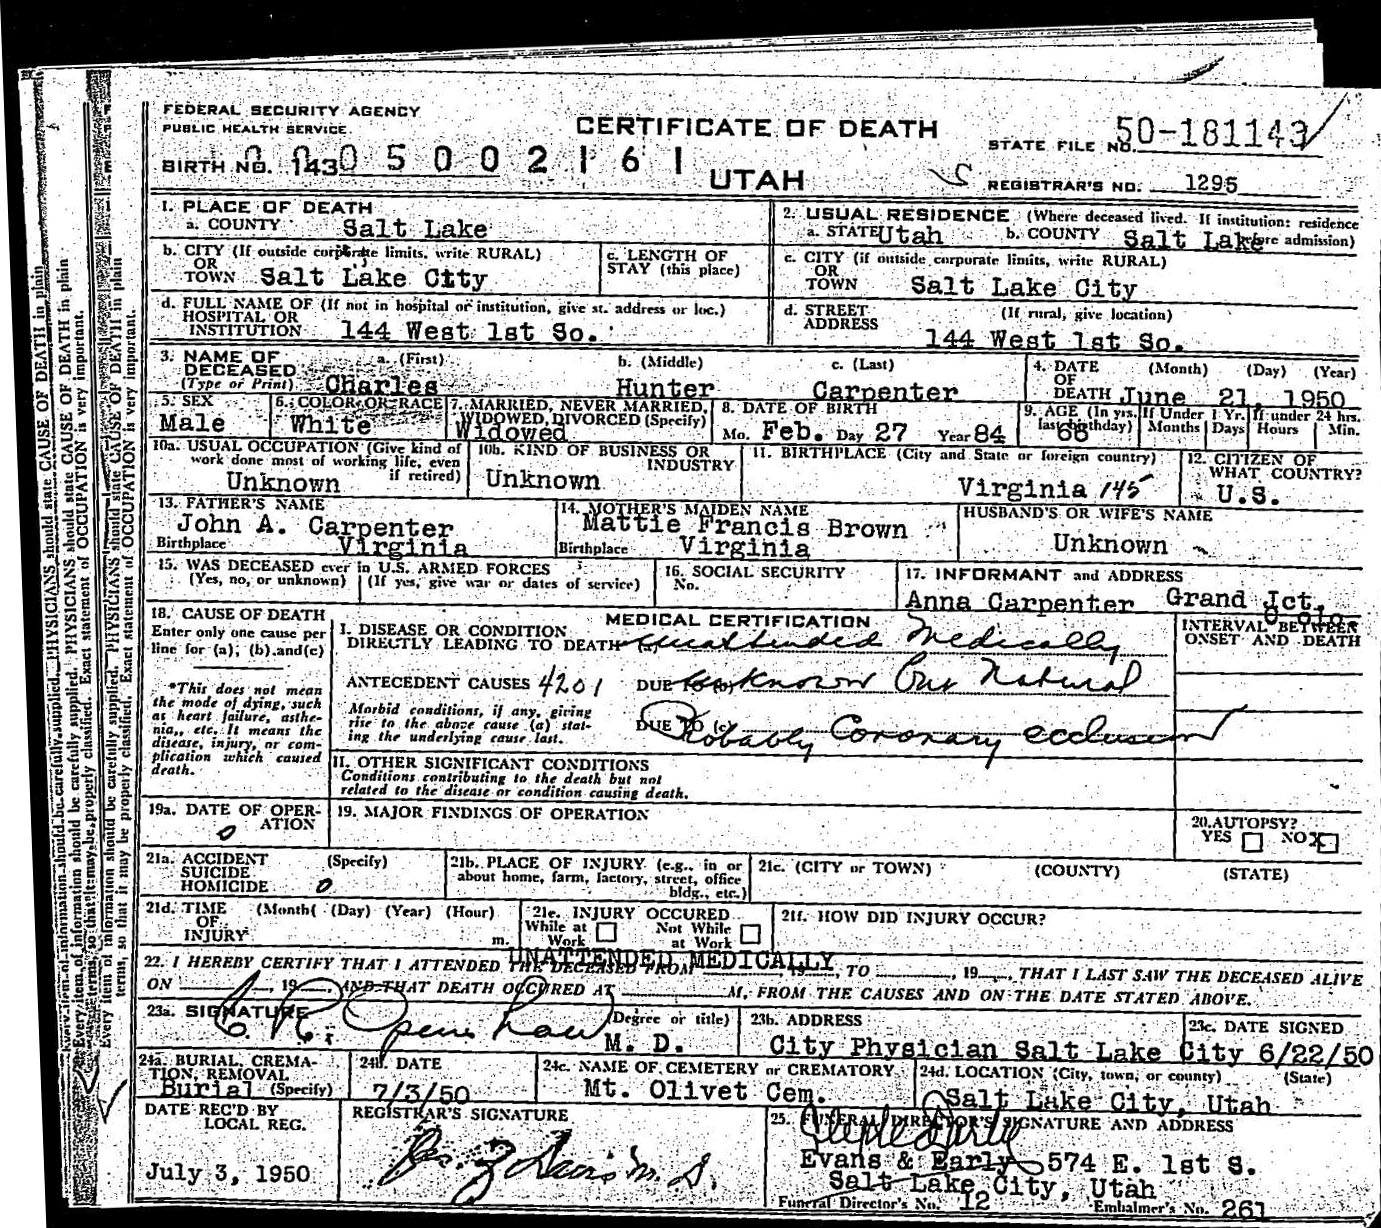 FEDERAL SECURITY AGENCY
PUBLIC HEALTH SERVICE.
CERTIFICATE OF DEATH
STATE FILE NO. 50-181143
BIRTH NO. 143 0 5 0 0 2 1 6 1
UTAH
REGISTRAR'S NO. 1295
1. PLACE OF DEATH
a. COUNTY Salt Lake
2. USUAL RESIDENCE (Where deceased lived. If institution: residence before admission)
a. STATE Utah b. COUNTY Salt Lake
b. CITY (If outside corporate limits, write RURAL)
OR
TOWN Salt Lake City
c. LENGTH OF
STAY (this place)
c. CITY (if outside corporate limits, write RURAL)
OR
TOWN Salt Lake City
d. FULL NAME OF (If not in hospital or institution, give st. address or loc.)
HOSPITAL OR
INSTITUTION 144 West 1st So.
d. STREET (If rural, give location)
ADDRESS 144 West 1st So.
3. NAME OF DECEASED (Type or Print)
a. (First) Charles
b. (Middle) Hunter
c. (Last) Carpenter
4. DATE OF DEATH (Month) (Day) (Year)
June 21, 1950
5. SEX
Male
6. COLOR OR RACE
White
7. MARRIED, NEVER MARRIED,
WIDOWED, DIVORCED (Specify)
Widowed
8. DATE OF BIRTH
Mo. Feb. Day 27 Year 84
9. AGE (In yrs. last birthday) 66
If Under 1 Yr. Months Days
If under 24 hrs. Hours Min.
10a. USUAL OCCUPATION (Give kind of
work done most of working life, even
if retired)
Unknown
10b. KIND OF BUSINESS OR
INDUSTRY
Unknown
11. BIRTHPLACE (City and State or foreign country)
Virginia 145
12. CITIZEN OF
WHAT COUNTRY?
U.S.
13. FATHER'S NAME
John A. Carpenter
Birthplace Virginia
14. MOTHER'S MAIDEN NAME
Mattie Francis Brown
Birthplace Virginia
HUSBAND'S OR WIFE'S NAME
Unknown
15. WAS DECEASED ever in U.S. ARMED FORCES
(Yes, no, or unknown) (If yes, give war or dates of service)
16. SOCIAL SECURITY
No.
17. INFORMANT and ADDRESS
Anna Carpenter Grand Jct.
18. CAUSE OF DEATH
Enter only one cause per
line for (a), (b), and (c)
*This does not mean
the mode of dying, such
as heart failure, asthe-
nia, etc. It means the
disease, injury, or com-
plication which caused
death.
MEDICAL CERTIFICATION
I. DISEASE OR CONDITION
DIRECTLY LEADING TO DEATH (a) Unattended Medically
ANTECEDENT CAUSES 4201 DUE TO (b) Unknown But Natural
Morbid conditions, if any, giving
rise to the above cause (a) stat-
ing the underlying cause last.
DUE TO (c) Probably Coronary occlusion
INTERVAL BETWEEN
ONSET AND DEATH
II. OTHER SIGNIFICANT CONDITIONS
Conditions contributing to the death but not
related to the disease or condition causing death.
19a. DATE OF OPER-
ATION
0
19. MAJOR FINDINGS OF OPERATION
20. AUTOPSY?
YES NO X
21a. ACCIDENT (Specify)
SUICIDE
HOMICIDE 0
21b. PLACE OF INJURY (e.g., in or
about home, farm, factory, street, office
bldg., etc.)
21c. (CITY or TOWN) (COUNTY) (STATE)
21d. TIME (Month( (Day) (Year) (Hour)
OF
INJURY m.
21e. INJURY OCCURED
While at Work Not While at Work
21f. HOW DID INJURY OCCUR?
UNATTENDED MEDICALLY
22. I HEREBY CERTIFY THAT I ATTENDED THE DECEASED FROM 19, TO, 19, THAT I LAST SAW THE DECEASED ALIVE
ON, 19 AND THAT DEATH OCCURED AT M, FROM THE CAUSES AND ON THE DATE STATED ABOVE.
23a. SIGNATURE (Degree or title)
M. D.
23b. ADDRESS
City Physician Salt Lake City
23c. DATE SIGNED
6/22/50
24a. BURIAL, CREMA-
TION, REMOVAL
Burial (Specify)
24b. DATE
7/3/50
24c. NAME OF CEMETERY or CREMATORY
Mt. Olivet Cem.
24d. LOCATION (City, town, or county) (State)
Salt Lake City, Utah
DATE REC'D BY
LOCAL REG.
July 3, 1950
REGISTRAR'S SIGNATURE
25. FUNERAL DIRECTOR'S SIGNATURE AND ADDRESS
Evans & Early 574 E. 1st S.
Salt Lake City, Utah
Funeral Director's No. 12 Embalmer's No. 261
Every item of information should be carefully supplied. PHYSICIANS should state CAUSE OF DEATH in plain
terms, so that it may be properly classified. Exact statement of OCCUPATION is very important.